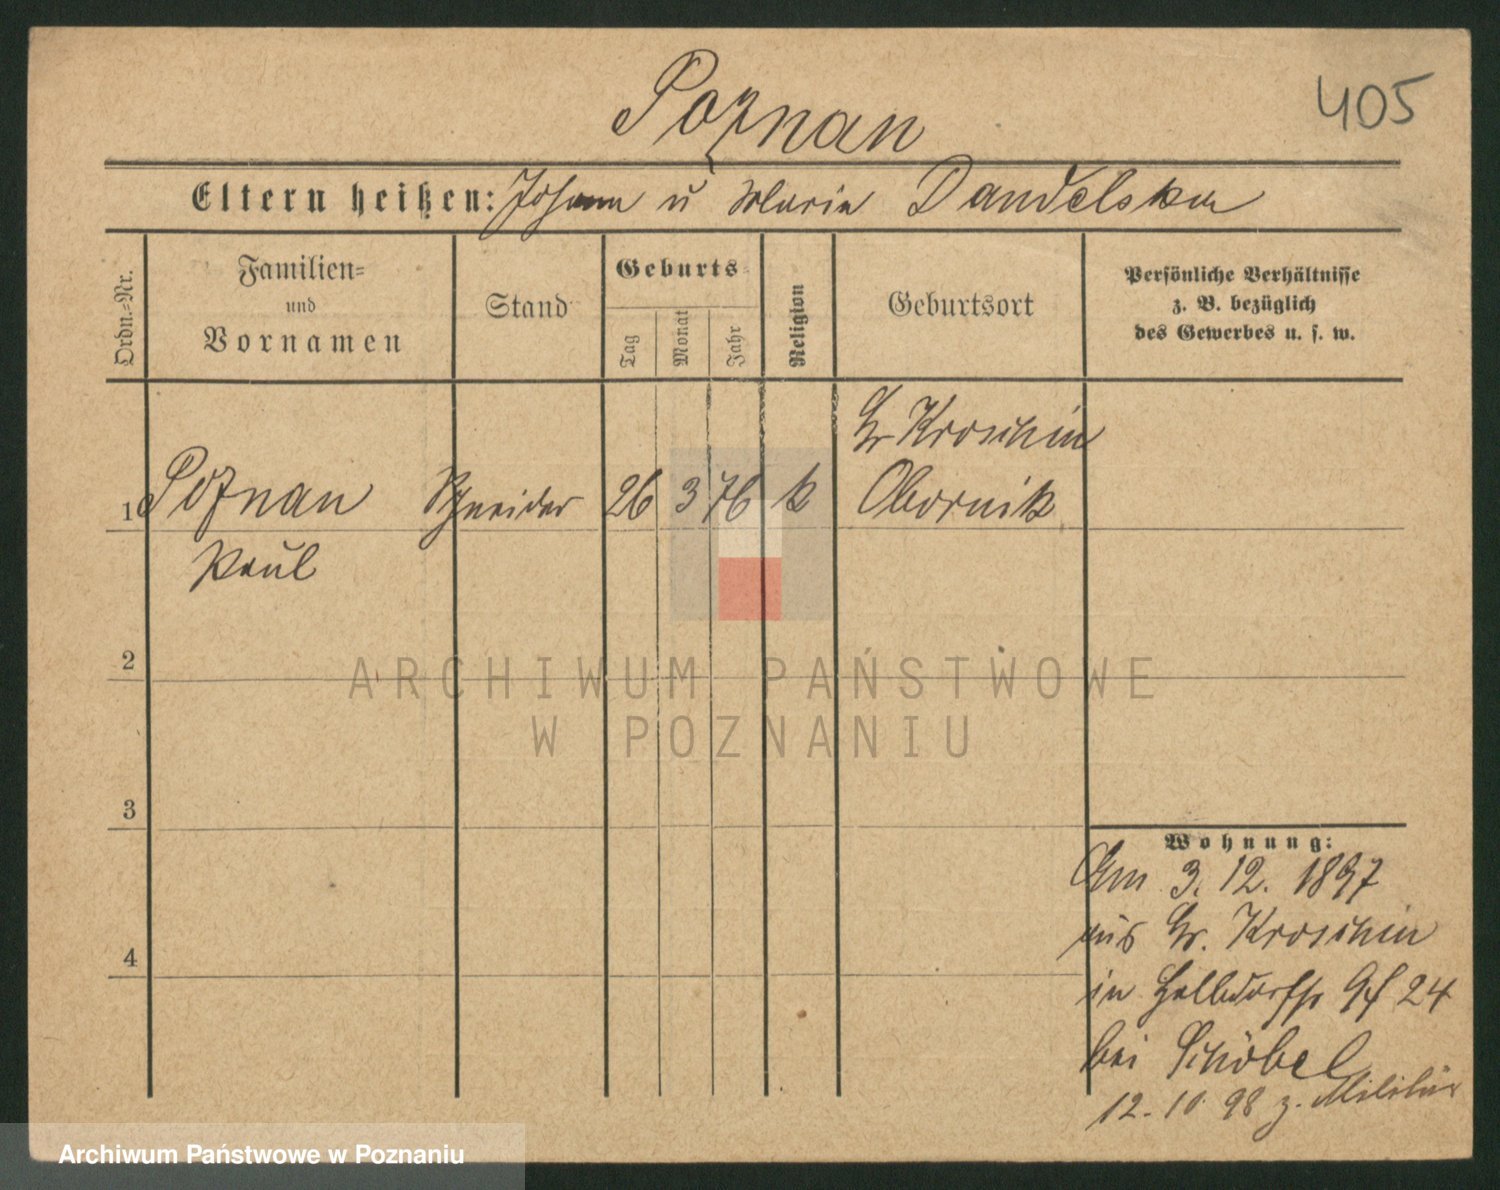 Poznan
405
Eltern heißen: Johann u Maria Dandelska
Ordn.-Nr.
Familien-
und
Vornamen
Stand
Geburts-
Tag
Monat
Jahr
Religion
Geburtsort
Persönliche Verhältnisse
z. B. bezüglich
des Gewerbes u. s. w.
Gr Kroschin
1 Poznan Schneider 26 3 76 k Obornik
Paul
2
ARCHIWUM PAŃSTWOWE
W POZNANIU
3
Wohnung:
Am 3. 12. 1897
aus Gr. Kroschin
4
in Halbdorfstr 24
bei Schöbel
12. 10. 98 z. Militär
Archiwum Państwowe w Poznaniu